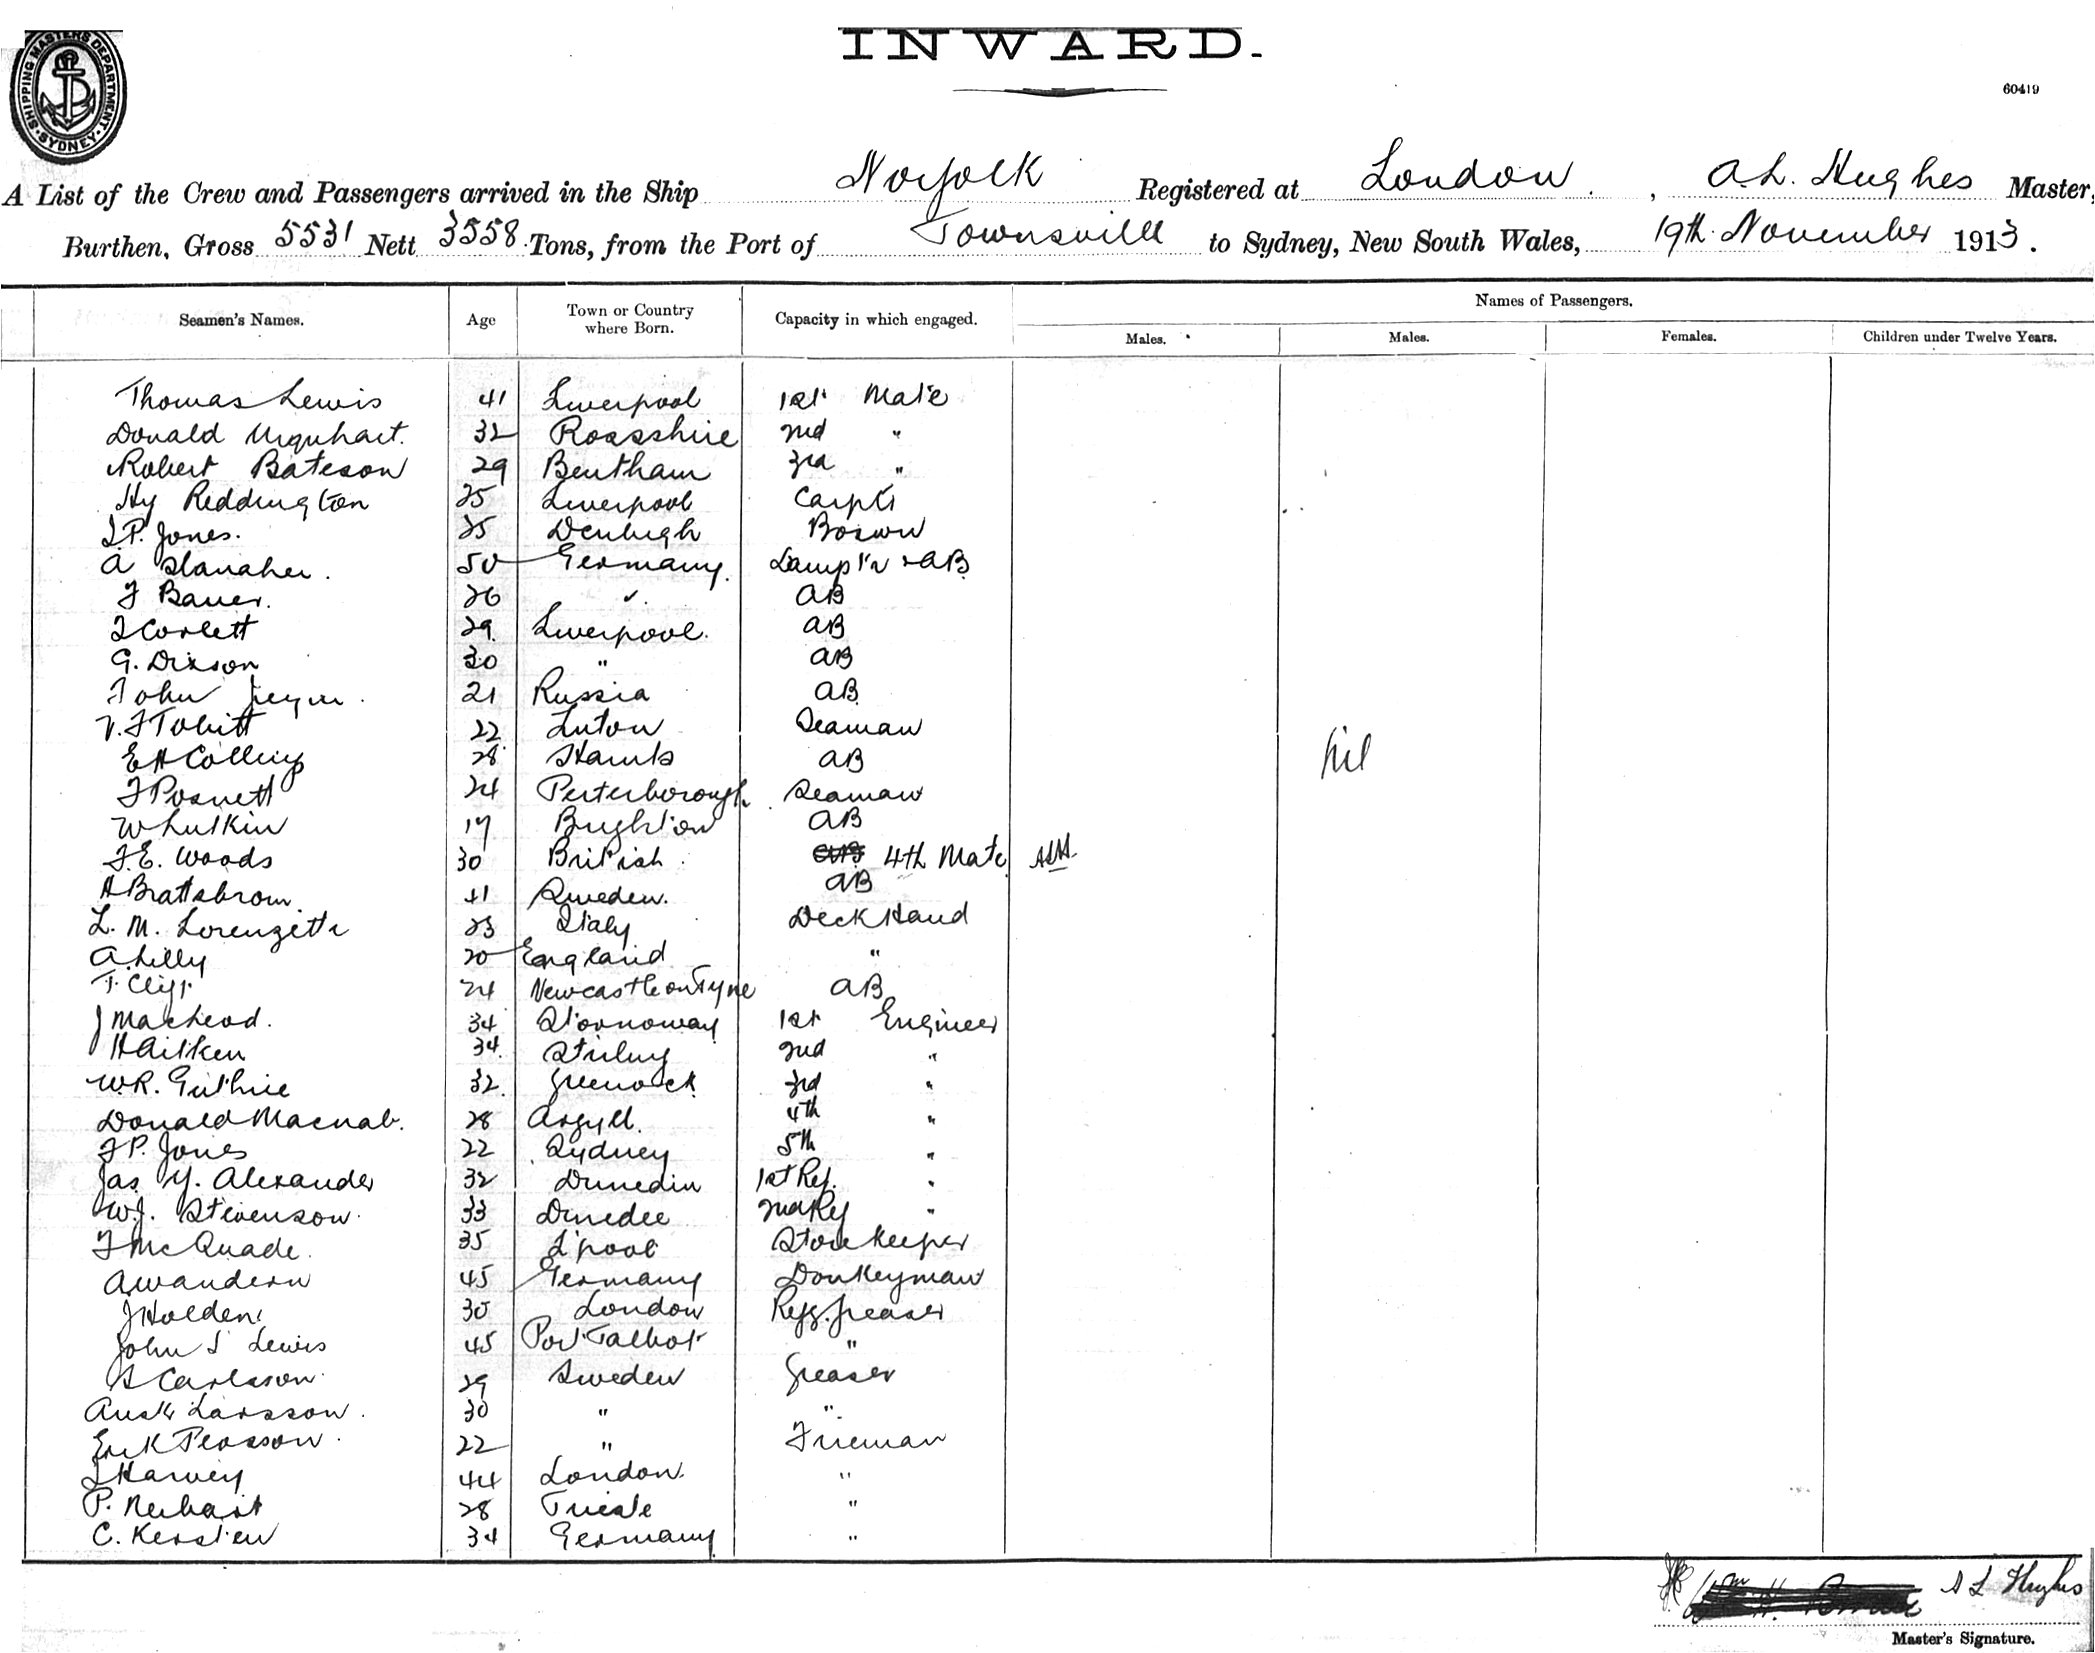 SHIPPING MASTERS DEPARTMENT. SYDNEY
INWARD.
60419
A List of the Crew and Passengers arrived in the Ship Norfolk Registered at London, A.L. Hughes Master,
Burthen, Gross 5531 Nett 3558 Tons, from the Port of Townsville to Sydney, New South Wales, 19th November 1913.
Names of Passengers.
Seamen's Names. Age Town or Country where Born. Capacity in which engaged. Males. Males. Females. Children under Twelve Years.
Thomas Lewis 41 Liverpool 1st Mate
Donald Urquhart. 32 Rossshire 2nd "
Robert Bateson 29 Bentham 3rd "
Hy Reddington 25 Liverpool Carptr
J.P. Jones. 25 Denbigh Bosun
A 50 Germany. Lamp Tr & AB
F Bauer. 26 " AB
J Corlett 29. Liverpool. AB
G. Dixson 30 " AB
John 21 Russia AB
V. F Tobitt 22 Luton Seaman
E H Collins 28 Hants AB
F Posnett 24 Perterborough Seaman
W Hutkin 19 Brighton AB
F.E. Woods 30 British. 4th Mate ALH
H Brattsbrom 41 Sweden. AB
L. M. Lorenzetti 23 Italy Deck Hand
A. Lilly 20 England "
T. Cliff 24 Newcastle on Tyne AB
J MacLeod. 34 Stornoway 1st Engineer
H Aitken 34. Stirling 2nd "
W.R. Guthrie 32. Greenock 3rd "
Donald Macnab. 28 Argyll. 4th "
F P. Jones 22 Sydney 5th "
Jas. Y. Alexander 32 Dunedin 1st Ref. "
W.J. Stevenson. 33 Dundee 2nd Ref "
F McQuade. 35 L'pool Storekeeper
A Wandern 45 Germany Donkeyman
J Holden 30 London Refg. Greaser
John S Lewis 45 Port Talbot "
S Carlsson. 29 Sweden Greaser
Aust Larsson. 30 " "
Erik Pearsson. 22 " Fireman
J Harvey 44 London. "
P. 28 Trieste "
C. Kersten 34 Germany "
Nil
A L Hughes
Master's Signature.